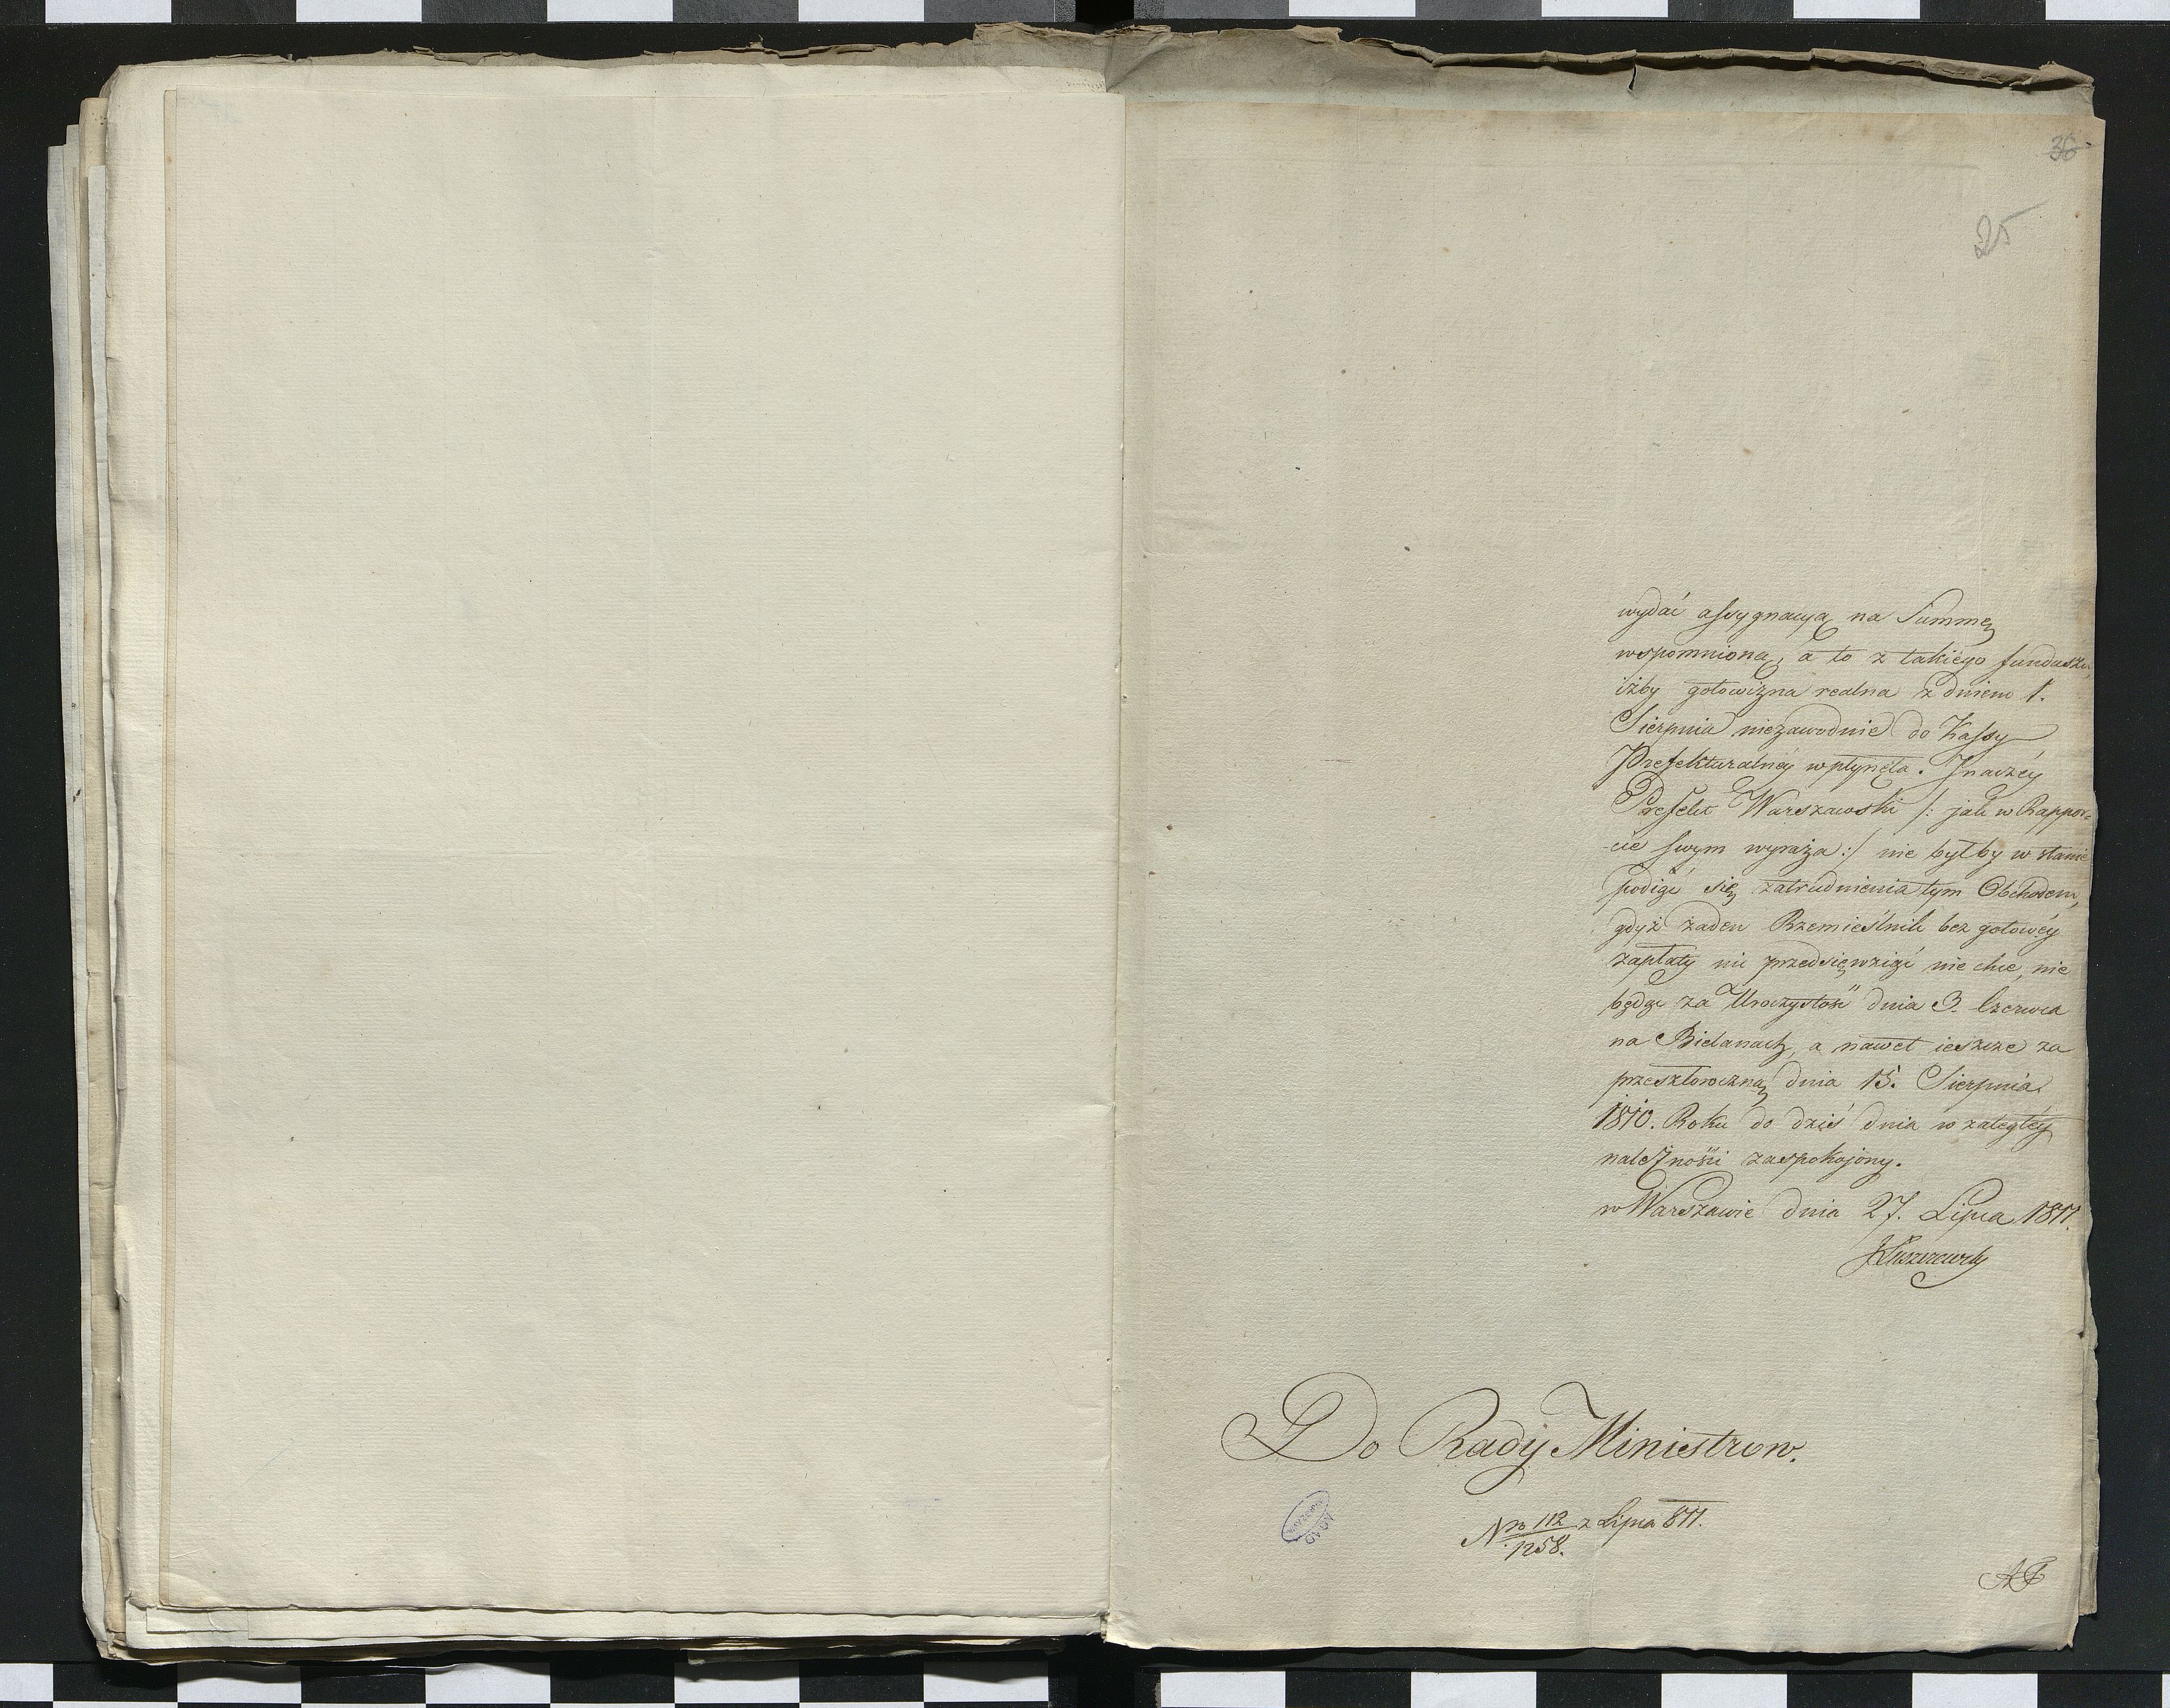 36
25
wydać assygnacyą na Summę
wspomnioną, a to z takiego funduszu,
iżby gotowizna realna z dniem 1.
Sierpnia niezawodnie do Kassy
Prefekturalnéy wpłynęła. Jnaczéy
Prefekt Warszawski /: jak w Rappor=
-cie swym wyraża :/ nie byłby w stanie
podiąć się zatrudnienia tym Obchodem,
gdyż żaden Rzemieślnik bez gotowéy
zapłaty nic przedsięwziąć nie chce, nie
będąc za Uroczystość dnia 3. Czerwca
na Bielanach, a nawet ieszcze za
przeszłoroczną dnia 15. Sierpnia
1810. Roku do dziś dnia w zaległéy
należności zaspokojony.
w Warszawie dnia 27. Lipca 1811.
Do Rady Ministrow.
Nro 112/1258. z Lipca 811.
AGAD